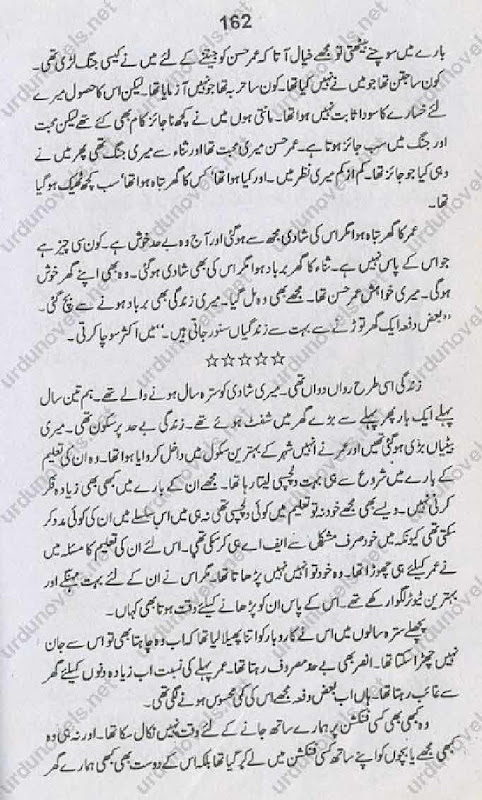 162
بارے میں سوچنے بیٹھتی تو مجھے خیال آتا کہ عمر حسن کو جیتنے کے لئے میں نے کیسی جنگ لڑی تھی۔
کون سا جتن تھا جو میں نے نہیں کیا تھا۔ کون سا حربہ تھا جو نہیں آزمایا تھا۔ لیکن اس کا حصول میرے
لئے خسارے کا سودا ثابت نہیں ہوا تھا۔ مانتی ہوں میں نے کچھ ناجائز کام بھی کئے تھے لیکن محبت
اور جنگ میں سب جائز ہوتا ہے۔ عمر حسن میری محبت تھا اور ثناء سے میری جنگ تھی پھر میں نے
وہی کیا جو جائز تھا۔ کم از کم میری نظر میں۔ اور کیا ہوا تھا‘ کس کا گھر تباہ ہوا تھا‘ سب کچھ ٹھیک ہو گیا
تھا۔
عمر کا گھر تباہ ہوا مگر اس کی شادی مجھ سے ہو گئی اور آج وہ بے حد خوش ہے۔ کون سی چیز ہے
جو اس کے پاس نہیں ہے۔ ثناء کا گھر برباد ہوا مگر اس کی بھی شادی ہو گئی۔ وہ بھی اپنے گھر خوش
ہو گی۔ میری خواہش عمر حسن تھا۔ مجھے بھی وہ مل گیا۔ میری زندگی بھی برباد ہونے سے بچ گئی۔
’’بعض دفعہ ایک گھر توڑنے سے بہت سے زندگیاں سنور جاتی ہیں۔‘‘ میں اکثر سوچا کرتی۔
☆☆☆☆☆
زندگی اسی طرح رواں دواں تھی۔ میری شادی کو سترہ سال ہونے والے تھے۔ ہم تین سال
پہلے ایک بار پھر پہلے سے بڑے گھر میں شفٹ ہوئے تھے۔ زندگی بے حد پر سکون تھی۔ میری
بیٹیاں بڑی ہو گئی تھیں اور عمر نے انہیں شہر کے بہترین سکول میں داخل کروایا ہوا تھا۔ وہ ان کی تعلیم
کے بارے میں شروع سے ہی بہت دلچسپی لیتا رہا تھا۔ مجھے ان کے بارے میں کبھی بھی زیادہ فکر
کرنی نہیں۔ ویسے بھی مجھے خود نہ تو تعلیم میں کوئی دلچسپی تھی نہ ہی میں اس سلسلے میں ان کی کوئی مدد کر
سکتی تھی کیونکہ میں خود صرف مشکل سے ایف اے ہی کر سکی تھی۔ اس لئے ان کی تعلیم کا مسئلہ میں
نے عمر کیلئے ہی چھوڑا تھا۔ وہ خود تو انہیں نہیں پڑھاتا تھا۔ مگر اس نے ان کے لئے بہت مہنگے اور
بہترین ٹیوٹر لگوا رکھے تھے۔ اس کے پاس ان کو پڑھانے کیلئے وقت ہوتا بھی کہاں۔
پچھلے سترہ سالوں میں اس نے کاروبار کو اتنا پھیلا لیا تھا کہ اب وہ چاہتا بھی تو اس سے جان
نہیں چھڑا سکتا تھا۔ انصر بھی بے حد مصروف رہتا تھا۔ عمر پہلے کی نسبت اب زیادہ دنوں کیلئے گھر
سے غائب رہتا تھا۔ ہاں اب بعض دفعہ مجھے اس کی کمی محسوس ہونے لگی تھی۔
وہ کبھی بھی کسی فنکشن پر ہمارے ساتھ جانے کے لئے وقت نہیں نکال سکا تھا۔ اور نہ ہی وہ
کبھی مجھے یا بچوں کو اپنے ساتھ کسی فنکشن میں لے کر گیا تھا بلکہ اس کے دوست بھی کبھی ہمارے گھر
urdunovels.net